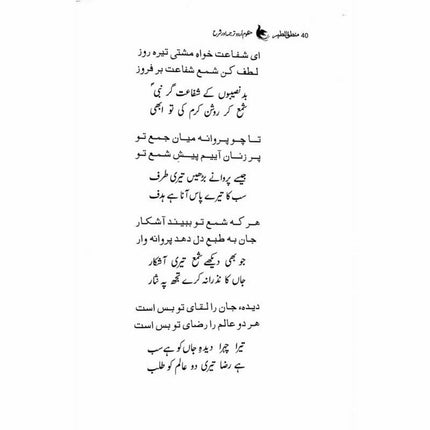 40 منطق الطیر منظوم اردو ترجمہ اور شرح
ای شفاعت خواہ مشتی تیرہ روز
لطف کن شمع شفاعت بر فروز
بد نصیبوں کے شفاعت گر نبیؐ
شمع کر روشن کرم کی تو ابھی
تا چو پروانہ میان جمع تو
پر زنان آییم پیش شمع تو
جیسے پروانے بڑھیں تیری طرف
سب کا تیرے پاس آنا ہے ہدف
ہر کہ شمع تو ببیند آشکار
جان بہ طبع دل دھد پروانہ وار
جو بھی دیکھے شمع تیری آشکار
جاں کا نذرانہ کرے تجھ پہ نثار
دیدہ، جان را لقای تو بس است
ھر دو عالم را رضای تو بس است
تیرا چہرا دیدہ جاں کو ہے سب
ہے رضا تیری دو عالم کو طلب